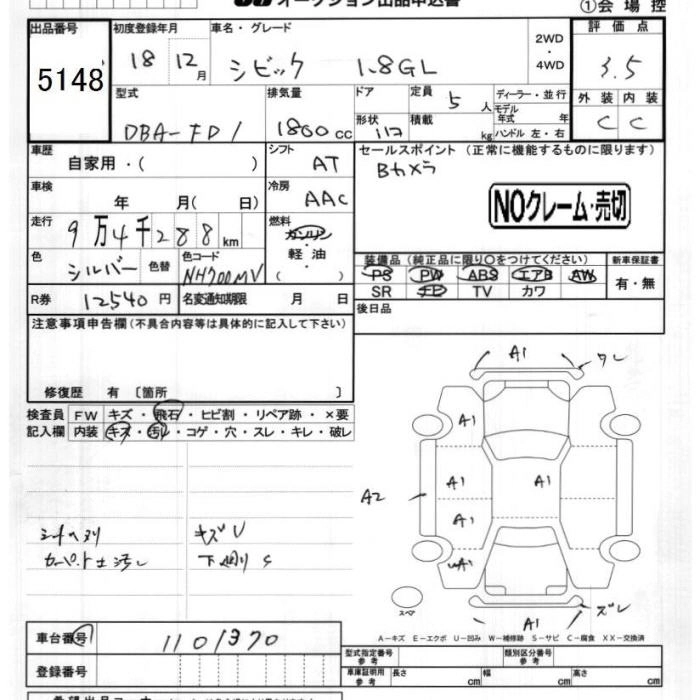 オークション出品申込書
①会場控
出品番号 初度登録年月 車名・グレード 2WD ・ 4WD 評価点
5148 18 12月 シビック 1.8GL 3.5
型式 排気量 ドア 定員 5人 ディーラー・並行 外装 内装
モデル年式 年
DBA-FD1 1800cc 形状 積載 kg ハンドル 左・右 C C
車歴 シフト セールスポイント (正常に機能するものに限ります)
自家用・( ) AT Bカメラ
車検 冷房 NOクレーム・売切
年 月( 日) AAC
走行 燃料
9万4千288km ガソリン・軽油・( )
色 色替 色コード 装備品 (純正品に限り〇をつけてください) 新車保証書
シルバー NH700MV PS PW ABS エアB AW 有・無
R券 12540円 名変通知期限 月 日 SR ナビ TV カワ
注意事項申告欄 (不具合内容等は具体的に記入して下さい) 後日品
修復歴 有 〔箇所 〕
検査員 FW キズ・飛石・ヒビ割・リペア跡・×要
記入欄 内装 キズ・汚レ・コゲ・穴・スレ・キレ・破レ
A1 ワレ
A1
A1 A1
A2
A1
シートヘタリ キズU
カーペット土汚レ 下廻りS
A1 ズレ
スペア
A－キズ E－エクボ U－凹み W－補修跡 S－サビ C－腐食 XX－交換済
車台番号 1101370
登録番号
型式指定番号 参考 類別区分番号 参考
車庫証明用 参考 長さ cm 幅 cm 高さ cm